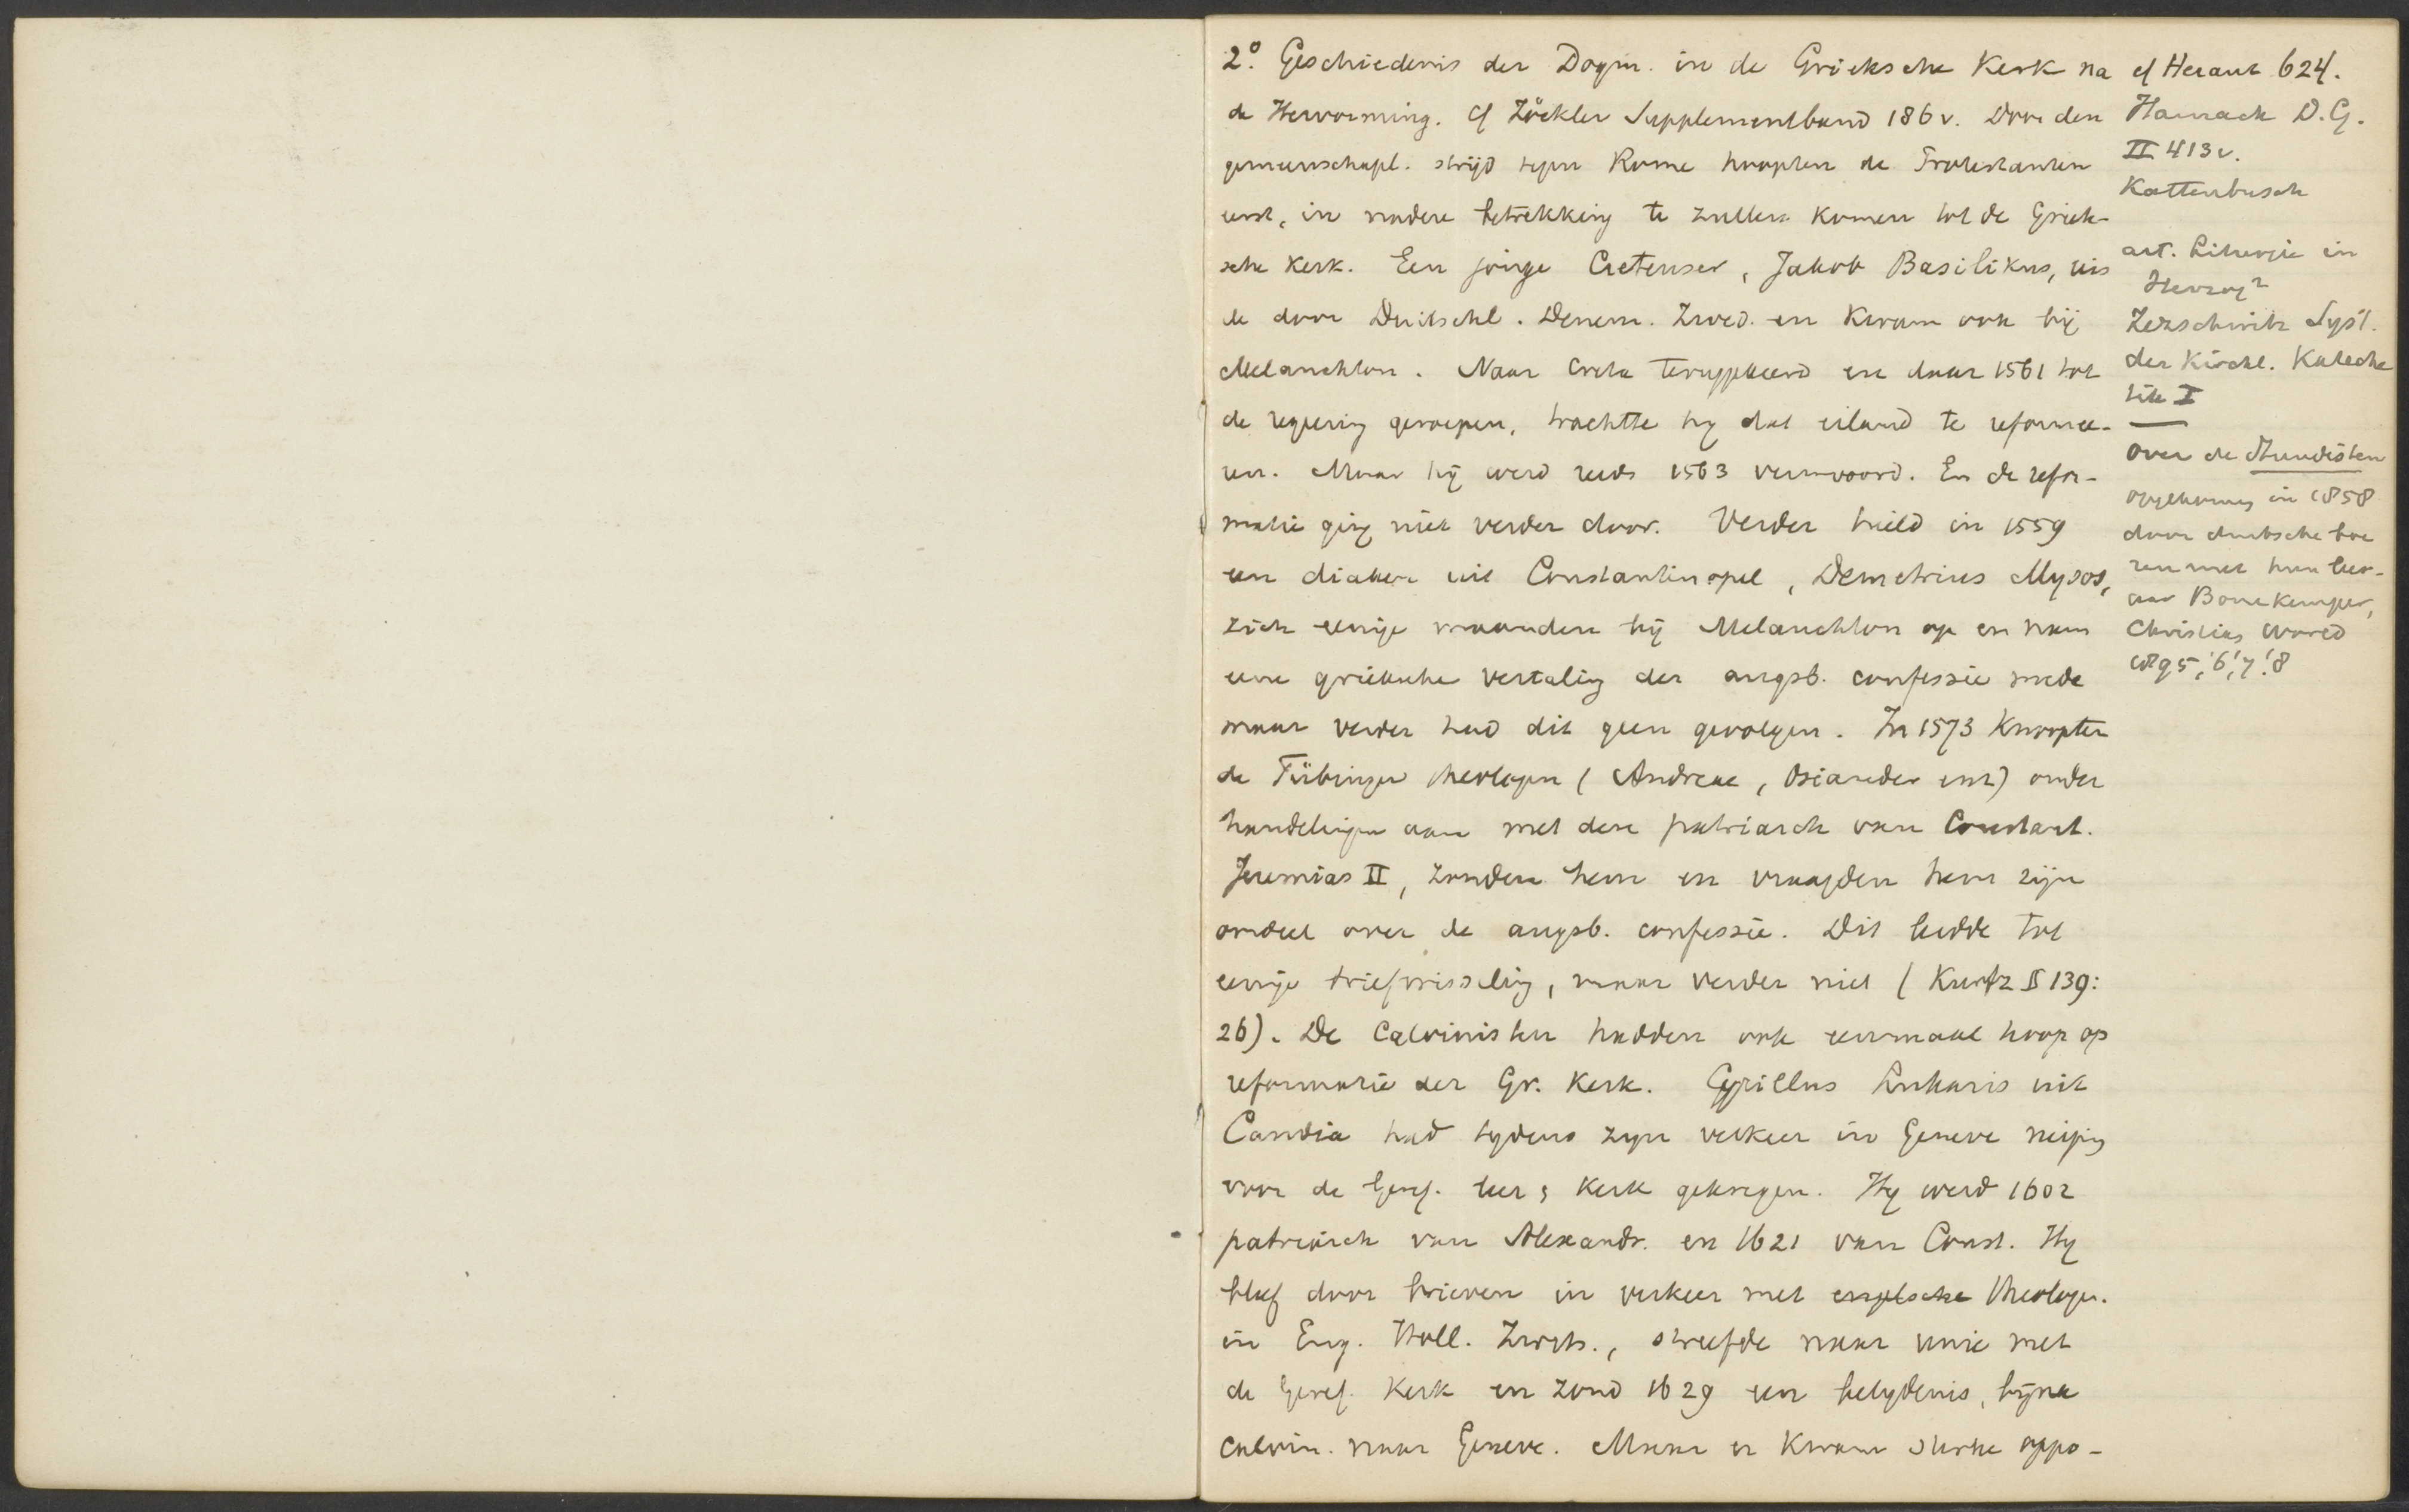 2º. Geschiedenis der Dogm. in de Grieksche Kerk na
de Hervorming. Cf Zöckler Supplementband 186 v. Door den
gemeenschapl. strijd tegen Rome hoopten de Protestanten
eerst, in nadere betrekking te zullen komen tot de Griek-
sche Kerk. Een jonge Cretenser, Jakob Basilikus, reis
de door Duitschl. Denem. Zwed. en kwam ook bij
Melanchton. Naar Creta teruggekeerd en daar 1561 tot
de regeering geroepen, trachtte hy dat eiland te reformee-
ren. Maar hij werd reeds 1563 vermoord. En de refor-
matie ging niet verder door. Verder hield in 1559
een diaken uit Constantinopel, Demetrius Mysos,
zich eenige maanden bij Melanchton op en nam
eene grieksche vertaling der augsb. confessie mede
maar verder had dit geen gevolgen. In 1573 knoopten
de Tübinger theologen (Andreae, Osiander enz) onder
handelingen aan met den patriarch van Constant.
Jeremias II, zonden hem en vraagden hem zijn
oordeel over de augsb. confessie. Dit leidde tot
eenige briefwisseling, maar verder niet (Kurtz § 139:
26). De Calvinisten hadden ook eenmaal hoop op
reformatie der Gr. Kerk. Cyrillus Lukaris uit
Candia had tydens zyn verkeer in Geneve neiging
voor de Geref. leer & Kerk gekregen. Hy werd 1602
patriarch van Alexandr. en 1621 van Const. Hy
bleef door brieven in verkeer met engelsche theologen.
in Eng. Holl. Zwits., streefde naar unie met
de Geref. Kerk en zond 1629 een belydenis, bijna
calvin. naar Geneve. Maar er kwam sterke oppo-
cf Heraut 624.
Harnack D.G.
II 413 v.
Kattenbusch
art. Liturgie in
Herzog²
Zezschwitz Syst.
der Kirchl. Kateche
tik I
Over de Stundisten
opgekomen in 1858
door duitsche boe
ren met hun leer-
aar Bonekemper,
Christian World
1895, '6, '7, '8